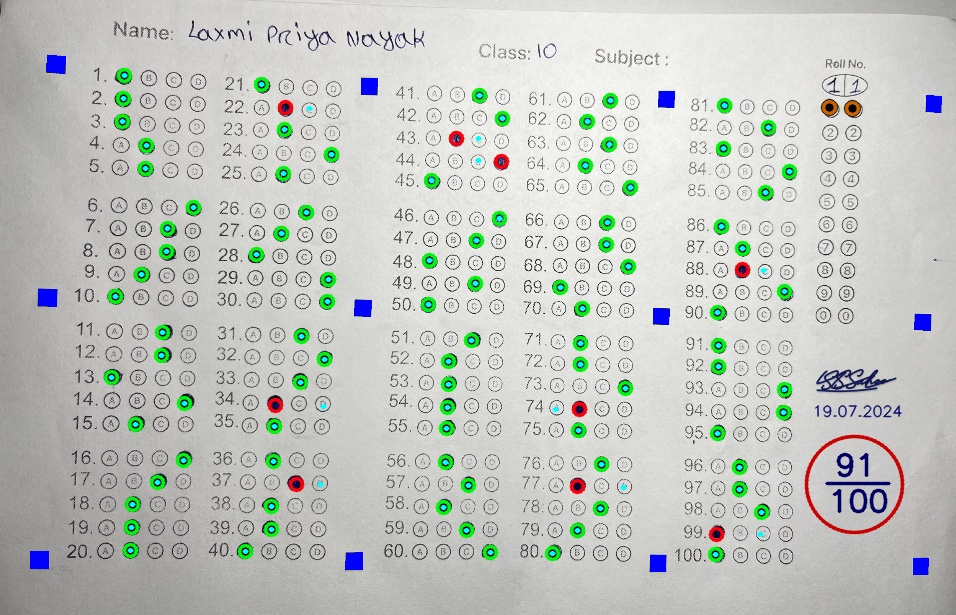 Name: Laxmi Priya Nayak
Class: 10 Subject :
Roll No.
1 1
1. A B C D
2. A B C D
3. A B C D
4. A B C D
5. A B C D
6. A B C D
7. A B C D
8. A B C D
9. A B C D
10. A B C D
11. A B C D
12. A B C D
13. A B C D
14. A B C D
15. A B C D
16. A B C D
17. A B C D
18. A B C D
19. A B C D
20. A B C D
21. A B C D
22. A B C D
23. A B C D
24. A B C D
25. A B C D
26. A B C D
27. A B C D
28. A B C D
29. A B C D
30. A B C D
31. A B C D
32. A B C D
33. A B C D
34. A B C D
35. A B C D
36. A B C D
37. A B C D
38. A B C D
39. A B C D
40. A B C D
41. A B C D
42. A B C D
43. A B C D
44. A B C D
45. A B C D
46. A B C D
47. A B C D
48. A B C D
49. A B C D
50. A B C D
51. A B C D
52. A B C D
53. A B C D
54. A B C D
55. A B C D
56. A B C D
57. A B C D
58. A B C D
59. A B C D
60. A B C D
61. A B C D
62. A B C D
63. A B C D
64. A B C D
65. A B C D
66. A B C D
67. A B C D
68. A B C D
69. A B C D
70. A B C D
71. A B C D
72. A B C D
73. A B C D
74 A B C D
75. A B C D
76. A B C D
77. A B C D
78. A B C D
79. A B C D
80. A B C D
81. A B C D
82. A B C D
83. A B C D
84. A B C D
85. A B C D
86. A B C D
87. A B C D
88. A B C D
89. A B C D
90. A B C D
91. A B C D
92. A B C D
93. A B C D
94. A B C D
95. A B C D
96. A B C D
97. A B C D
98. A B C D
99. A B C D
100. A B C D
2 2
3 3
4 4
5 5
6 6
7 7
8 8
9 9
0 0
19.07.2024
91
100